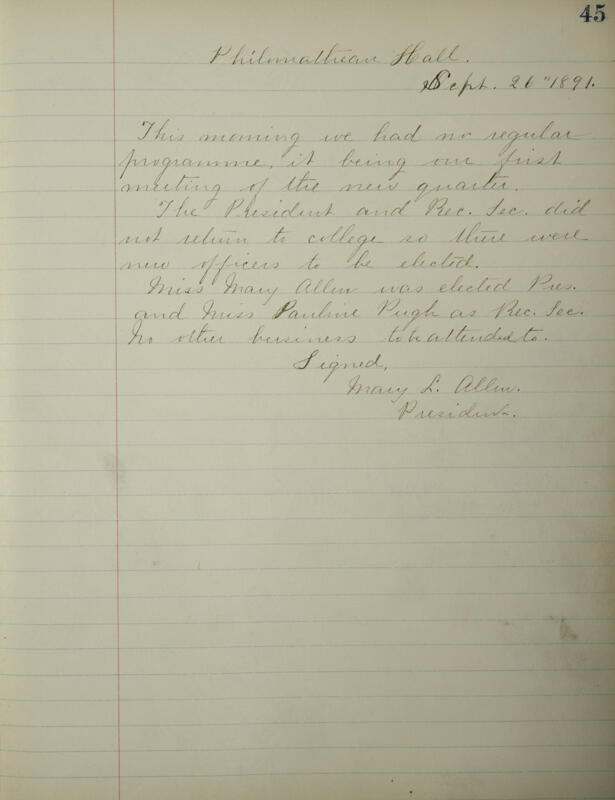 45
Philomathean Hall.
Sept. 26" 1891.
This morning we had no regular
programme, it being our first
meeting of the new quarter.
The President and Rec. Sec. did
not return to college so there were
new officers to be elected.
Miss Mary Allen was elected Pres.
and Miss Pauline Pugh as Rec. Sec.
No other business to be attended to.
Signed,
Mary L. Allen.
President.